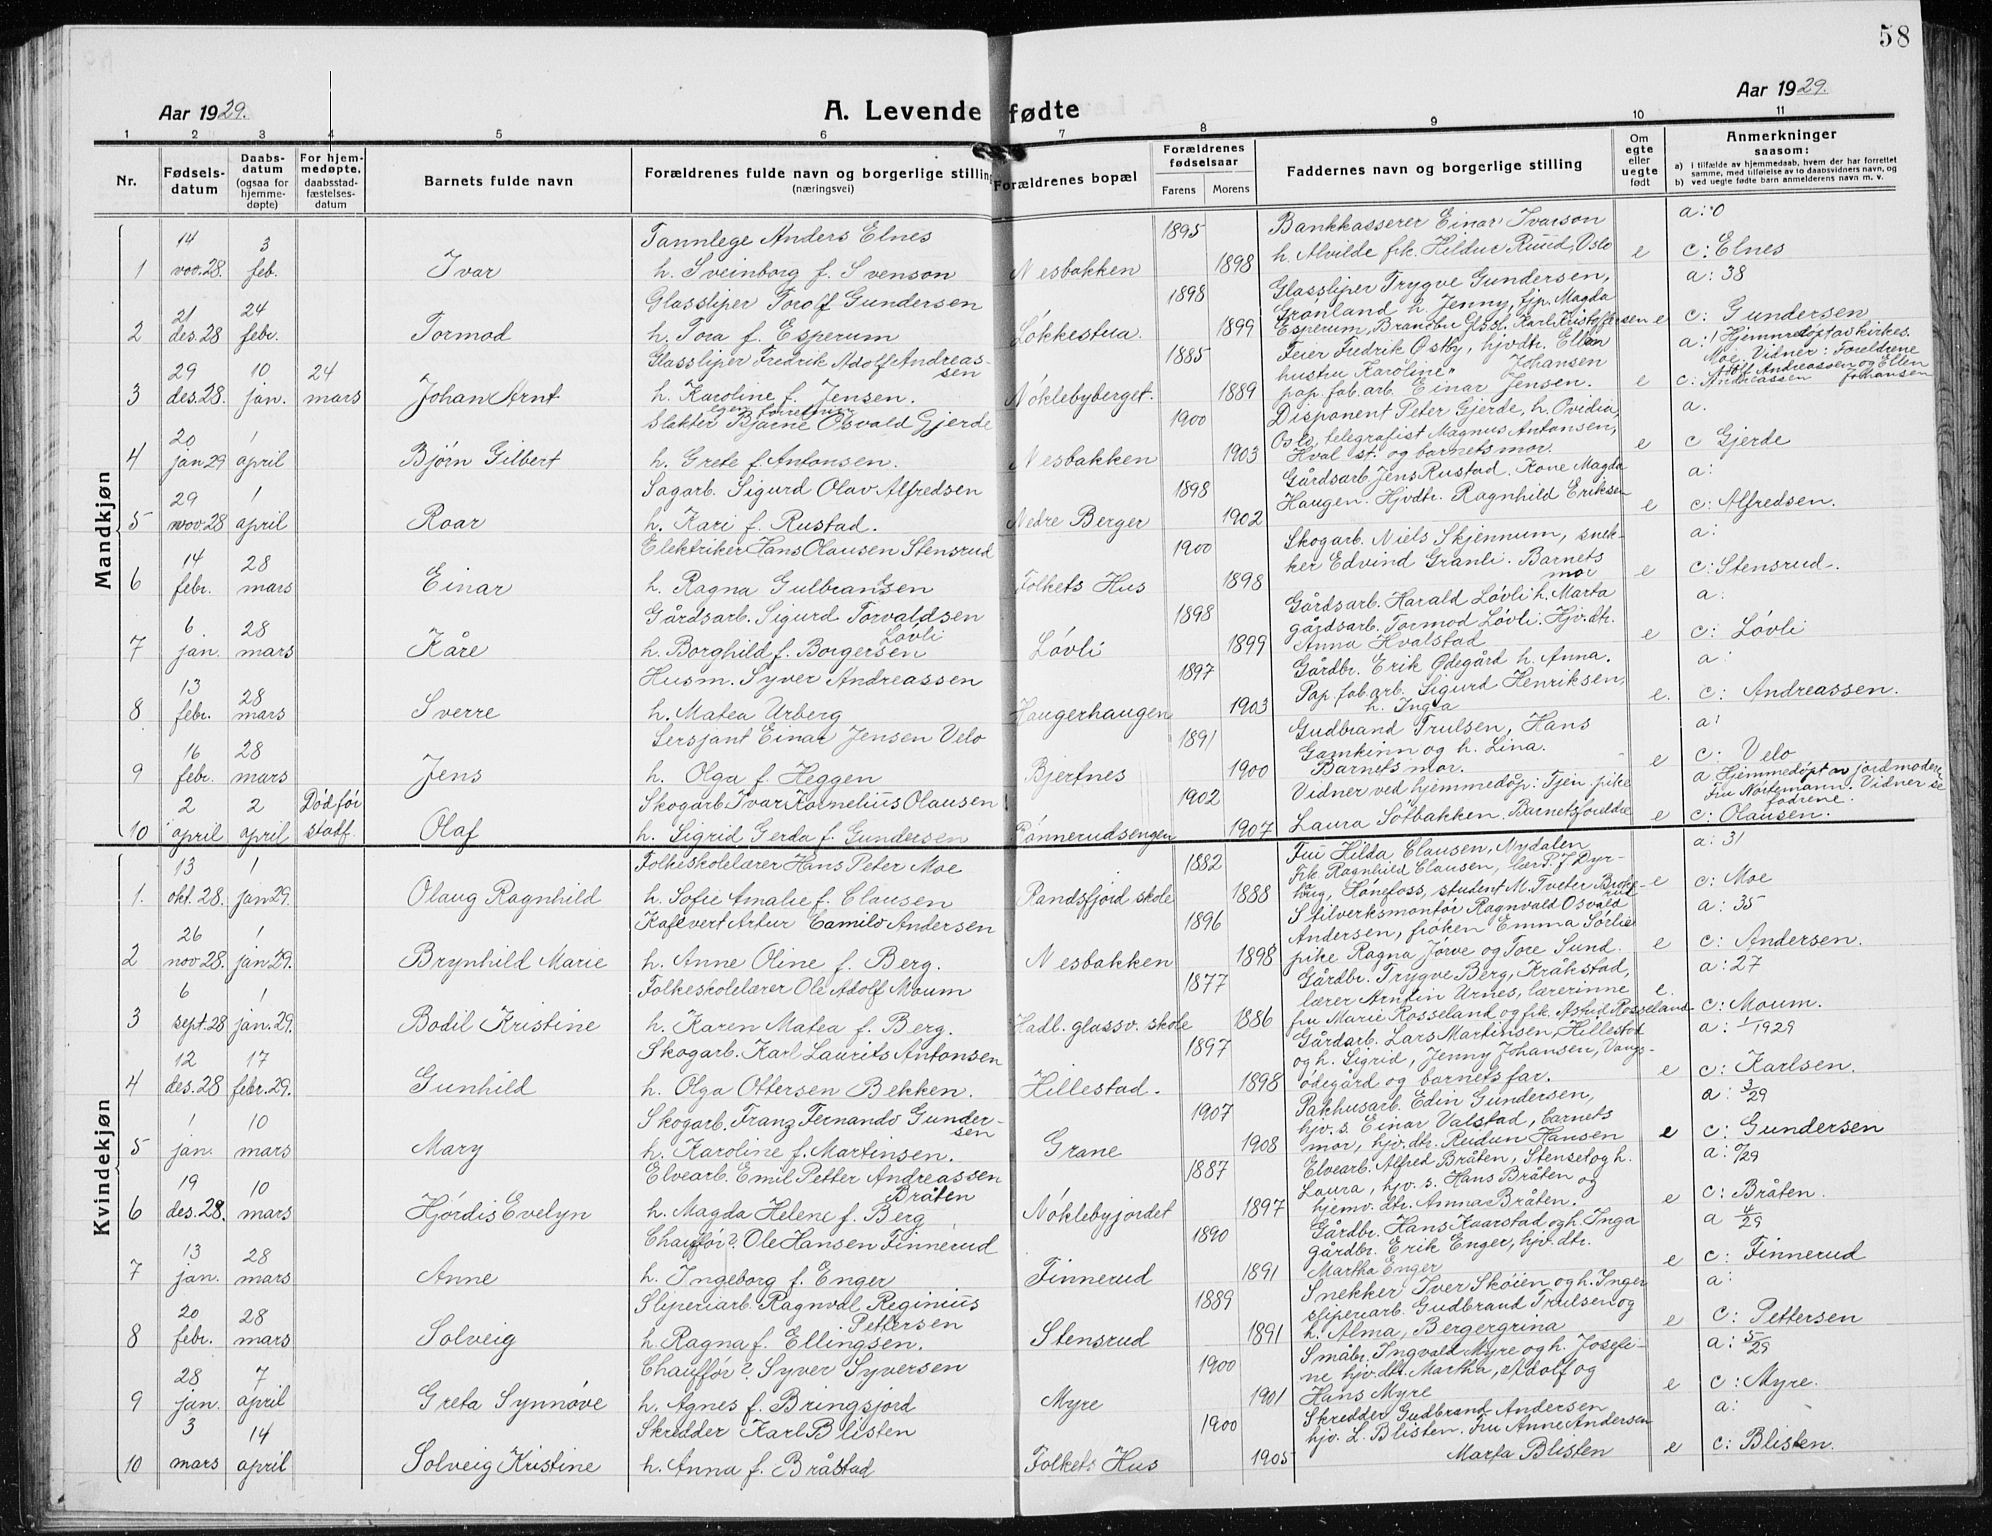 58
Aar 1929.
A. Levende fødte
Aar 1929.
1 2 3 4 5 6 7 8 9 10 11
Nr.
Fødsels-datum
Daabs-datum (ogsaa for hjemme-døpte)
For hjem-medøpte, daabsstad-fæstelses-datum
Barnets fulde navn
Forældrenes fulde navn og borgerlige stilling (næringsvei)
Forældrenes bopæl
Forældrenes fødselsaar
Farens Morens
Faddernes navn og borgerlige stilling
Om egte eller uegte født
Anmerkninger saasom:
a) i tilfælde av hjemmedaab, hvem der har forrettet samme, med tilføielse av to daabsvidners navn, og
b) ved uegte fødte barn anmelderens navn m. v.
Mandkjøn
14 3 Tannlege Anders Elnes 1895 Bankkasserer Einar Ivarson a: 0
1 nov. 28. feb. Ivar h. Sveinborg f. Svenson Nesbakken 1898 h. Alvilde frk. Hildur Ruud, Oslo e c: Elnes
21 24 Glassliper Torolf Gundersen 1898 Glassliper Trygve Gundersen, a: 38
Grønland h. Jenny, tjp. Magda
2 des. 28 febr. Tormod h. Tora f. Esperum Løkkestua. 1899 Esperum, Brandbu Glssl. Karl Kristoffersen e c: Gundersen
29 10 24 Glassliper Fredrik Adolf Andreas-sen 1885 Feier Fredrik Østby, hjvdtr. Ellen Johansen a: Hjemmedøpt av kirkes. Moe. Vidner: Foreldrene
hustru Karoline Adolf Andreassen og Ellen Johansen
3 des. 28. jan. mars Johan Arnt h. Karoline f. Jensen. Nøklebyberget. 1889 pap. fab. arb. Einar Jensen. e c: Andreassen
20 1 Slakter egen forretning Bjarne Osvald Gjerde 1900 Disponent Peter Gjerde, h. Ovidia, a.
Oslo, telegrafist Magnus Antonsen,
4 jan 29 april Bjørn Gilbert h. Grete f. Antonsen. Nesbakken 1903 Hval st. og barnets mor. e c Gjerde
29 1 Sagarb. Sigurd Olav Alfredsen 1898 Gårdsarb. Jens Rustad. Kone Magda a:
5 nov. 28 april Roar h. Kari f. Rustad. Nedre Berger 1902 Haugen. Hjvdtr. Ragnhild Eriksen e c: Alfredsen.
14 28 Elektriker Hans Olausen Stensrud 1900 Skogarb. Niels Skjennum, snek- a:
6 febr. mars Einar h. Ragna Gulbrandsen Folkets Hus 1898 ker Edvind Granli. Barnets mor e c: Stensrud.
6. 28 Gårdsarb. Sigurd Torvaldsen Løvli 1898 Gårdsarb. Harald Løvli h. Marta a:
gårdsarb. Tormod Løvli. Hjv. dtr.
7 jan. mars Kåre h. Borghild f. Borgersen Løvli 1899 Anna Hvalstad e c: Løvli
13 28 Husm. Syver Andreassen 1897 Gårdbr. Erik Ødegård h. Anna. a:
Pap. fab. arb. Sigurd Henriksen,
8 febr. mars Sverre h. Matea Urberg Haugerhaugen 1903 h. Inga e. c: Andreassen.
16 28 Sersjant Einar Jensen Velo 1891 Gudbrand Trulsen, Hans a:
Gamkinn og h. Lina.
9 febr. mars Jens h. Olga f. Heggen Bjertnes 1900 Barnets mor. e c: Velo
2 2 Død før Skogarb. Ivar Kornelius Olausen 1902 Vidner ved hjemmedøp: Tjen. pike a Hjemmedøpt av jordmoder Fru Nortemann. Vidner se fadrene.
10 april april stadf. Olaf h. Sigrid Gerda f. Gundersen Rønnerudsengen 1907 Laura Søtbakken. Barnetsforeldre e c: Olausen.
Kvindekjøn
13 1 Folkeskolelærer Hans Peter Moe 1882 Fru Hilda Clausen, Nydalen a: 31
frk. Ragnhild Clausen, lær P. J Dyr-
1. okt. 28. jan 29. Olaug Ragnhild h. Sofie Amalie f. Clausen Randsfjord skole 1888 haug, Hønefoss, student M. Tveter e c: Moe
26 1 Kafevert Artur Camilo Andersen 1896 Stilverksmontør Ragnvald Osvald a: 35
Andersen, frøken Emma Sørlie
2 nov 28. jan 29. Brynhild Marie h. Anne Oline f. Berg. Nesbakken 1898 pike Ragna Jørve og Tore Sund. e c: Andersen.
6 1 Folkeskolelærer Ole Adolf Moum 1877 Gårdbr. Trygve Berg, Kråkstad, a: 27
lærer Arnfin Urnes, lærerinne
3 sept. 28 jan. 29. Bodil Kristine h. Karen Matea f. Berg. Hadl. glassv. skole 1886 fru Marie Rosseland og frk. Astrid Rosseland e. c: Moum.
12 17 Skogarb. Karl Laurits Antonsen 1897 Gårdarb. Lars Martinsen, Hillestad a: 1/1929
og h. Sigrid, Jenny Johansen, Vangs-
4 des. 28 febr. 29. Gunhild h. Olga Ottersen Bekken. Hillestad. 1898 ødegård og barnets far. e c: Karlsen.
1 10 Skogarb. Franz Fernando Gunder-sen 1907 Pakhusarb. Edin Gundersen, a: 3/29
hjv. s. Einar Valstad, barnets
5 jan. mars Mary h. Karoline f. Martinsen. Grane 1908 mor, hjv. dtr. Rudun Hansen e c: Gundersen
19 10 Elvearb. Emil Petter Andreassen Bråten 1887 Elvearb. Alfred Bråten, Stenset og h. a: 0/29
Laura, hjv. s. Hans Bråten og
6 des. 28. mars Hjørdis Evelyn h. Magda Helene f. Berg Nøklebyjordet 1897 hjemv. dtr. Anna Bråten. e c: Bråten.
13 28 Chauffør? Ole Hansen Finnerud 1890 Gårdbr. Hans Kaarstad og h. Inga a 4/29
gårdbr. Erik Enger, hjv. dtr.
7 jan. mars Anne h. Ingeborg f. Enger Finnerud 1891 Martha Enger e c: Finnerud
20 28 Sliperiarb. Ragnval Reginius Pettersen 1889 Snekker Iver Skøien og h. Inger a:
sliperiarb. Gudbrand Trulsen og
8 febr. mars Solveig h. Ragna f. Ellingsen. Stensrud 1891 h. Alma, Bergergrina e c: Pettersen
28 7 Chauffør? Syver Syversen 1900 Småbr. Ingvald Myre og h. Josefi- a: 5/29
ne hjv. dtr. Martha, Adolf og
9 jan. april Greta Synnøve h. Agnes f. Bringsjord Myre 1901 Hans Myre e c: Myre.
3 14 Skredder Karl Blisten 1900 Skredder Gudbrand Andersen a:
hjv. L. Blisten. Fru Anne Andersen
10 mars april Solveig Kristine h. Anna f. Bråstad Folkets Hus 1905 Marta Blisten e c: Blisten.